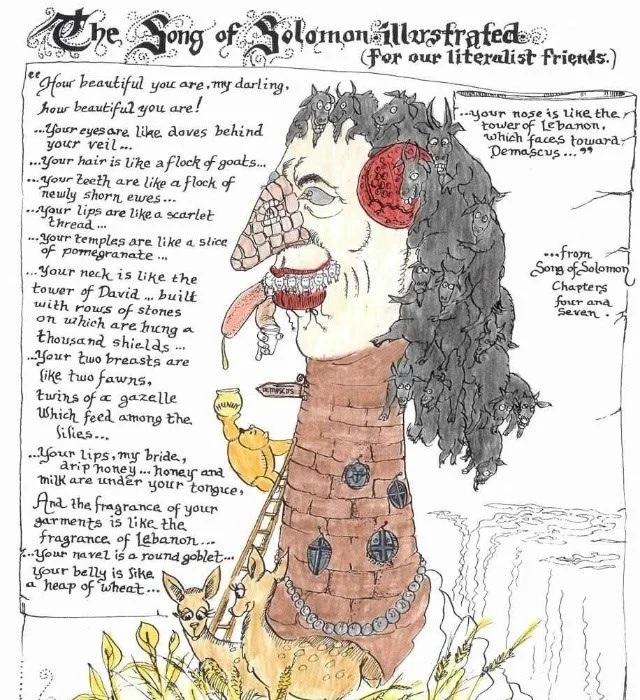 The Song of Solomon illustrated
(for our literalist friends.)
"How beautiful you are, my darling,
how beautiful you are!
...Your eyes are like doves behind
your veil ...
...Your hair is like a flock of goats...
...Your teeth are like a flock of
newly shorn ewes...
...Your lips are like a scarlet
thread ...
...Your temples are like a slice
of pomegranate ...
...Your neck is like the
tower of David ... built
with rows of stones
on which are hung a
thousand shields ...
...Your two breasts are
like two fawns,
twins of a gazelle
Which feed among the
lilies...
...Your lips, my bride,
drip honey ... honey and
milk are under your tongue,
And the fragrance of your
garments is like the
fragrance of Lebanon...
...Your navel is a round goblet...
Your belly is like
a heap of wheat ...
...your nose is like the
tower of Lebanon,
which faces toward
Demascus ..."
...from
Song of Solomon
Chapters
four and
seven.
DEMASCUS
HUNNY